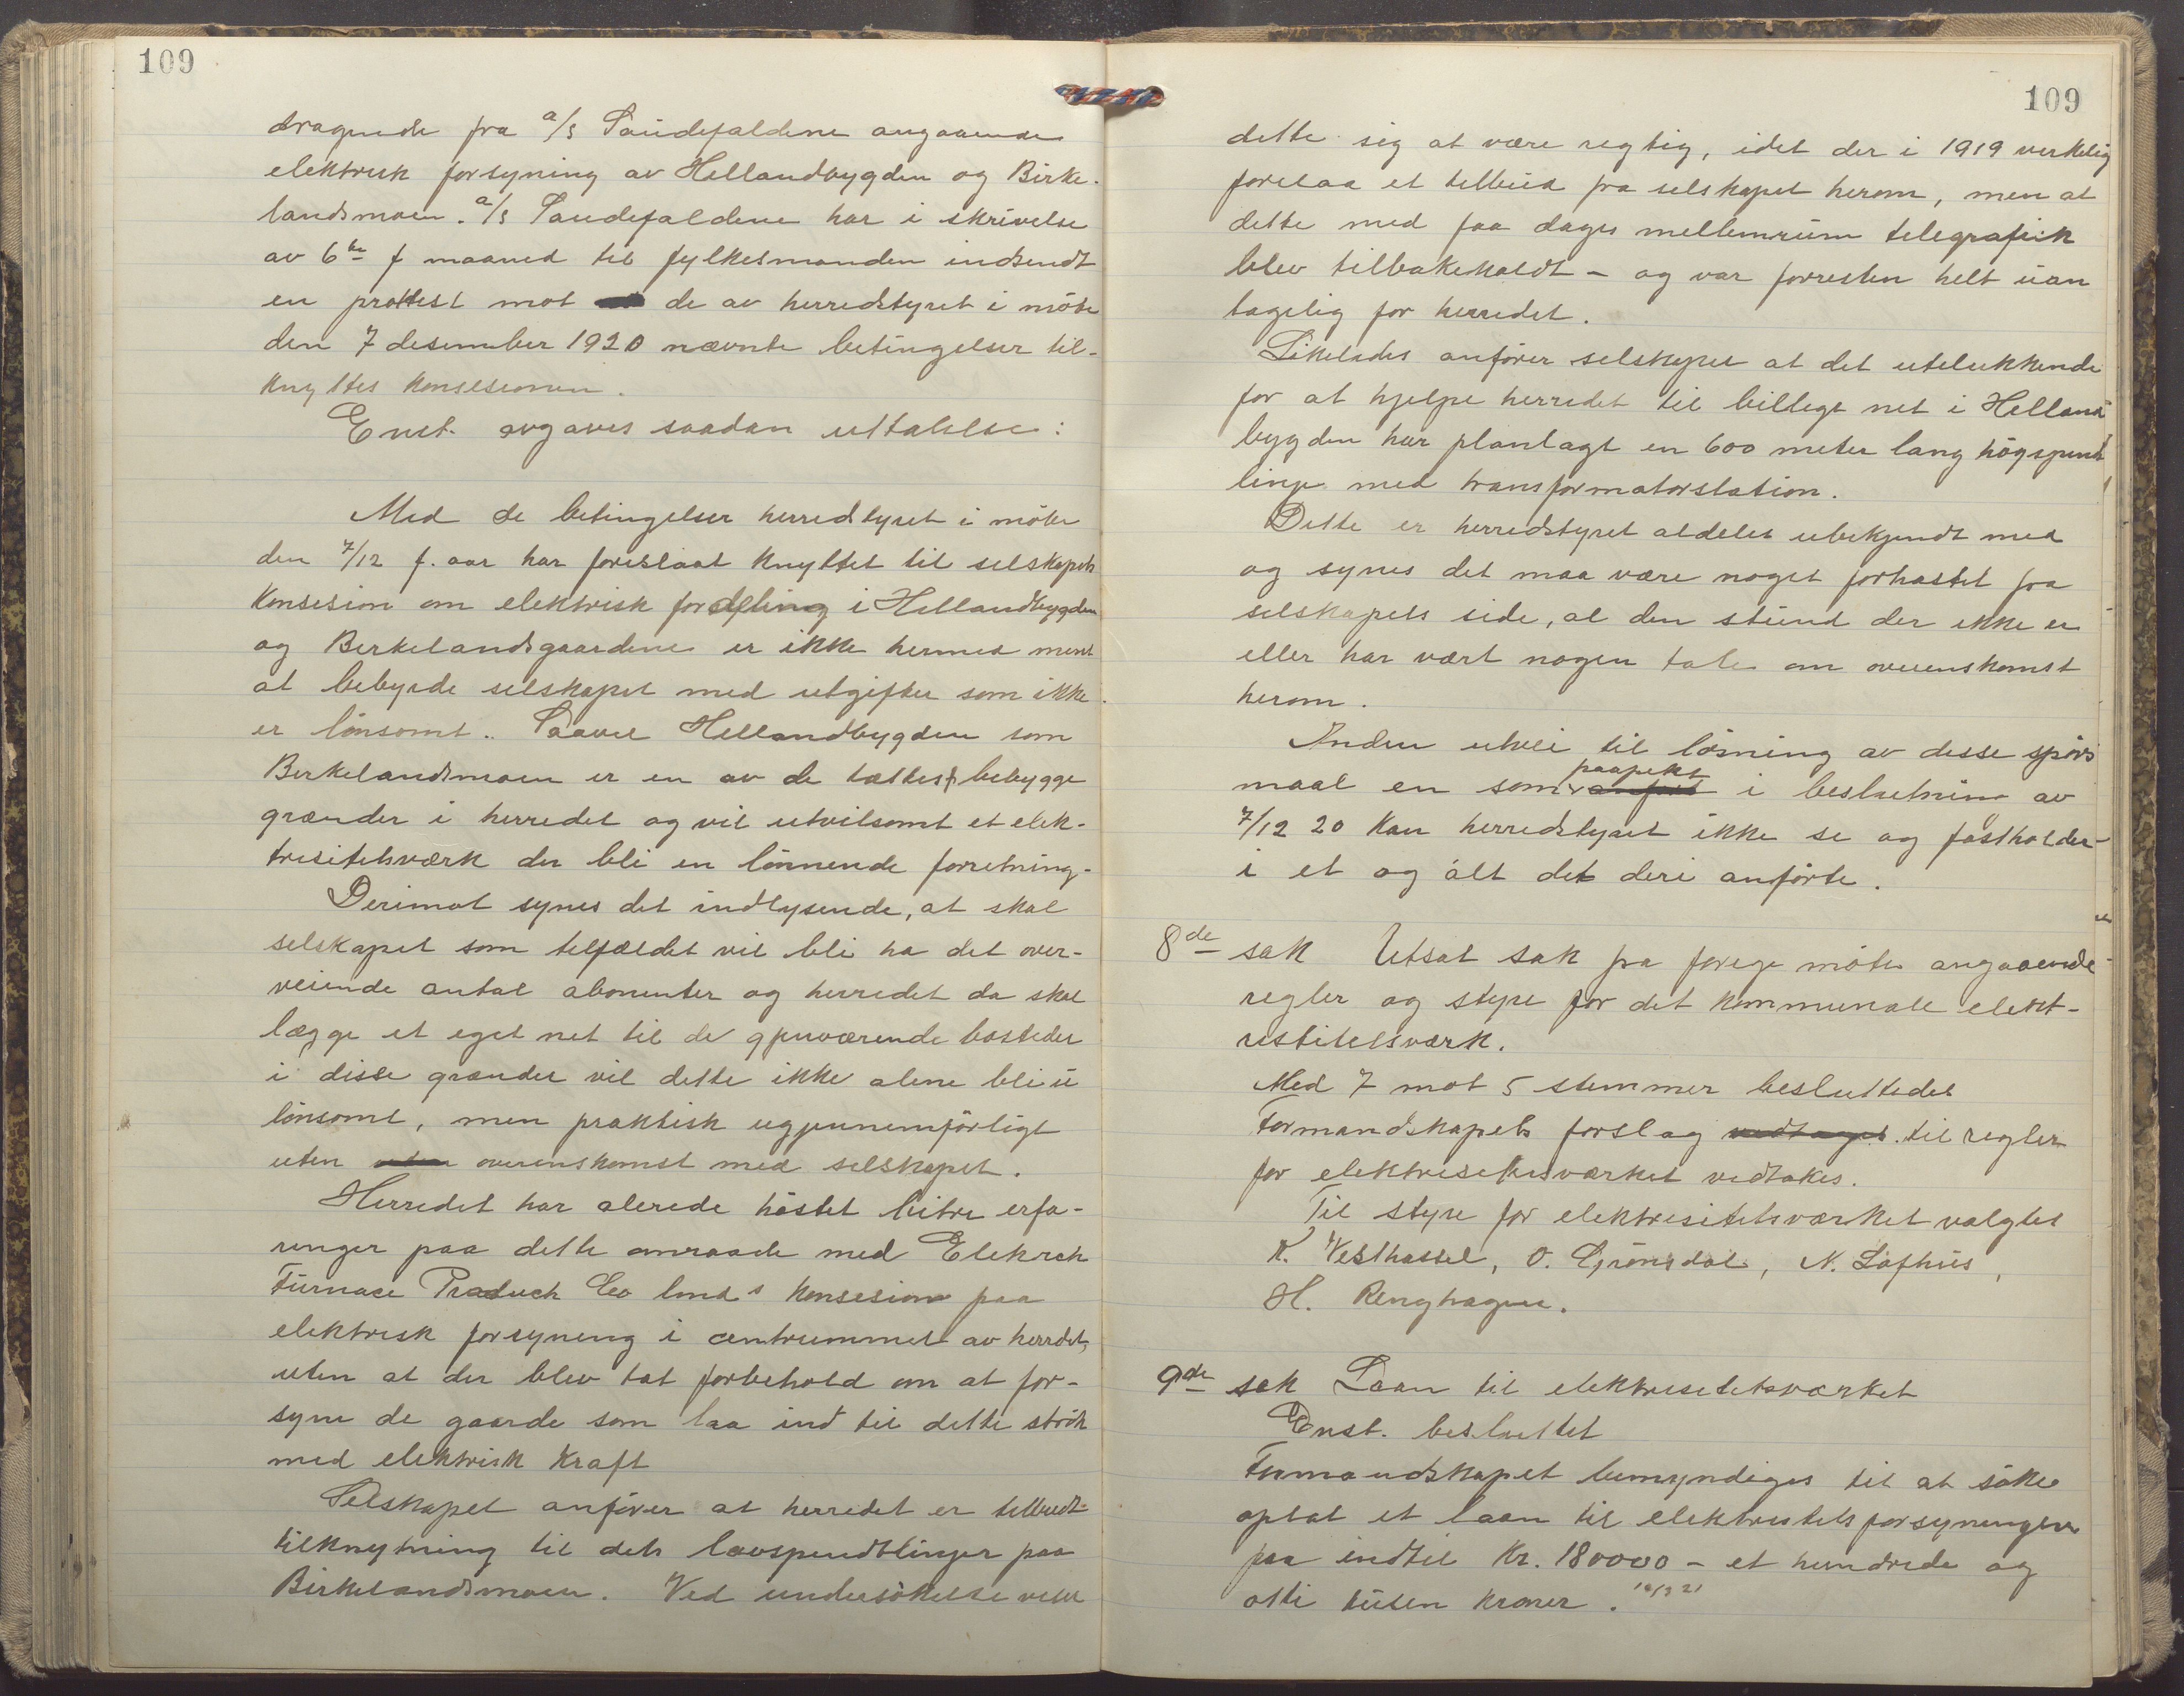 109
dragende fra a/s Saudefaldene angaaende
elektrisk forsyning av Hellandbygden og Birke-
landsmoen. a/s Saudefaldene har i skrivelse
av 6te f maaned til fylkesmanden indsendt
en prottest mot de av herredstyret i möte
den 7 desember 1920 nævnte betingelser til-
knyttes konsesionen.
Enst. avgaves saadan uttalelse:
Med de betingelser herredstyret i möte
den 7/12 f. aar har foreslaat knyttet til selskapets
konsesion om elektrisk fordeling i Hellandbygden
og Birkelandsgaardene er ikke hermed ment
at bebyrde selskapet med utgifter som ikke
er lönsomt. Saavel Hellandbygden som
Birkelandsmoen er en av de tættest bebygge
grænder i herredet og vil utvilsomt et elek-
tresitetsværk der bli en lönnende forretning.
Derimot synes det indlysende, at skal
selskapet som tilfældet vil bli ha det over-
veiende antal abonenter og herredet da skal
lægge et eget net til de gjenværende bosteder
i disse grænder vil dette ikke alene bli u
lönsomt, men praktisk ugjennemförligt
uten uten overenskomst med selskapet.
Herredet har alerede höstet bitre erfa-
ringer paa dette omraade med Elekrck
Furnace Produck Co lmds konsesion paa
elektrisk forsyning i centrummet av herrdet,
uten at der blev tat forbehold om at for-
syne de gaarde som laa ind til dette strök
med elektrisk kraft
Selskapet anförer at herredet er tilbudt
tilknytning til dets lavspendtlinjer paa
Birkelandsmoen. Ved undersökelse viser
109
dette sig at være regtig, idet der i 1919 verkelig
forelaa et tilbud fra selskapet herom, men at
dette med faa dages mellemrum telegrafisk
blev tilbakekaldt - og var forresten helt uan
tagelig for herredet.
Likeledes anförer selskapet at det utelukkende
for at hjelpe herredet til billige net i Helland
bygden har planlagt en 600 meter lang högspendt
linje med transformatorstation.
Dette er herredstyret aldeles ubekjendt med
og synes det maa være noget forhastet fra
selskapets side, al den stund der ikke er
eller har vært nogen tale om overenskomst
herom.
Anden utvei til lösning av disse spörs
maal en som paapekt i beslutning av
7/12 20 kan herredstyret ikke se og fastholder
i et og alt det deri anförte.
8de sak Utsat sak fra forige möte angaaende
regler og styre for det kommunale elekt-
resitetsværk.
Med 7 mot 5 stemmer besluttedes
Formandskapets forslag vedtaget til regler
for elektresitetsværket vedtakes.
Til styre for elektresitetsværket valgtes
K. Vesthassel, O. Grönsdal, N. Lofhus,
H. Renghagen.
9de sak Laan til elektresitetsværket
Enst. besluttet
Formandskapet bemyndiges til at söke
optat et laan til elektrestetsforsyningen
paa indtil Kr. 180000 - et hundrede og
otti tusen kroner.